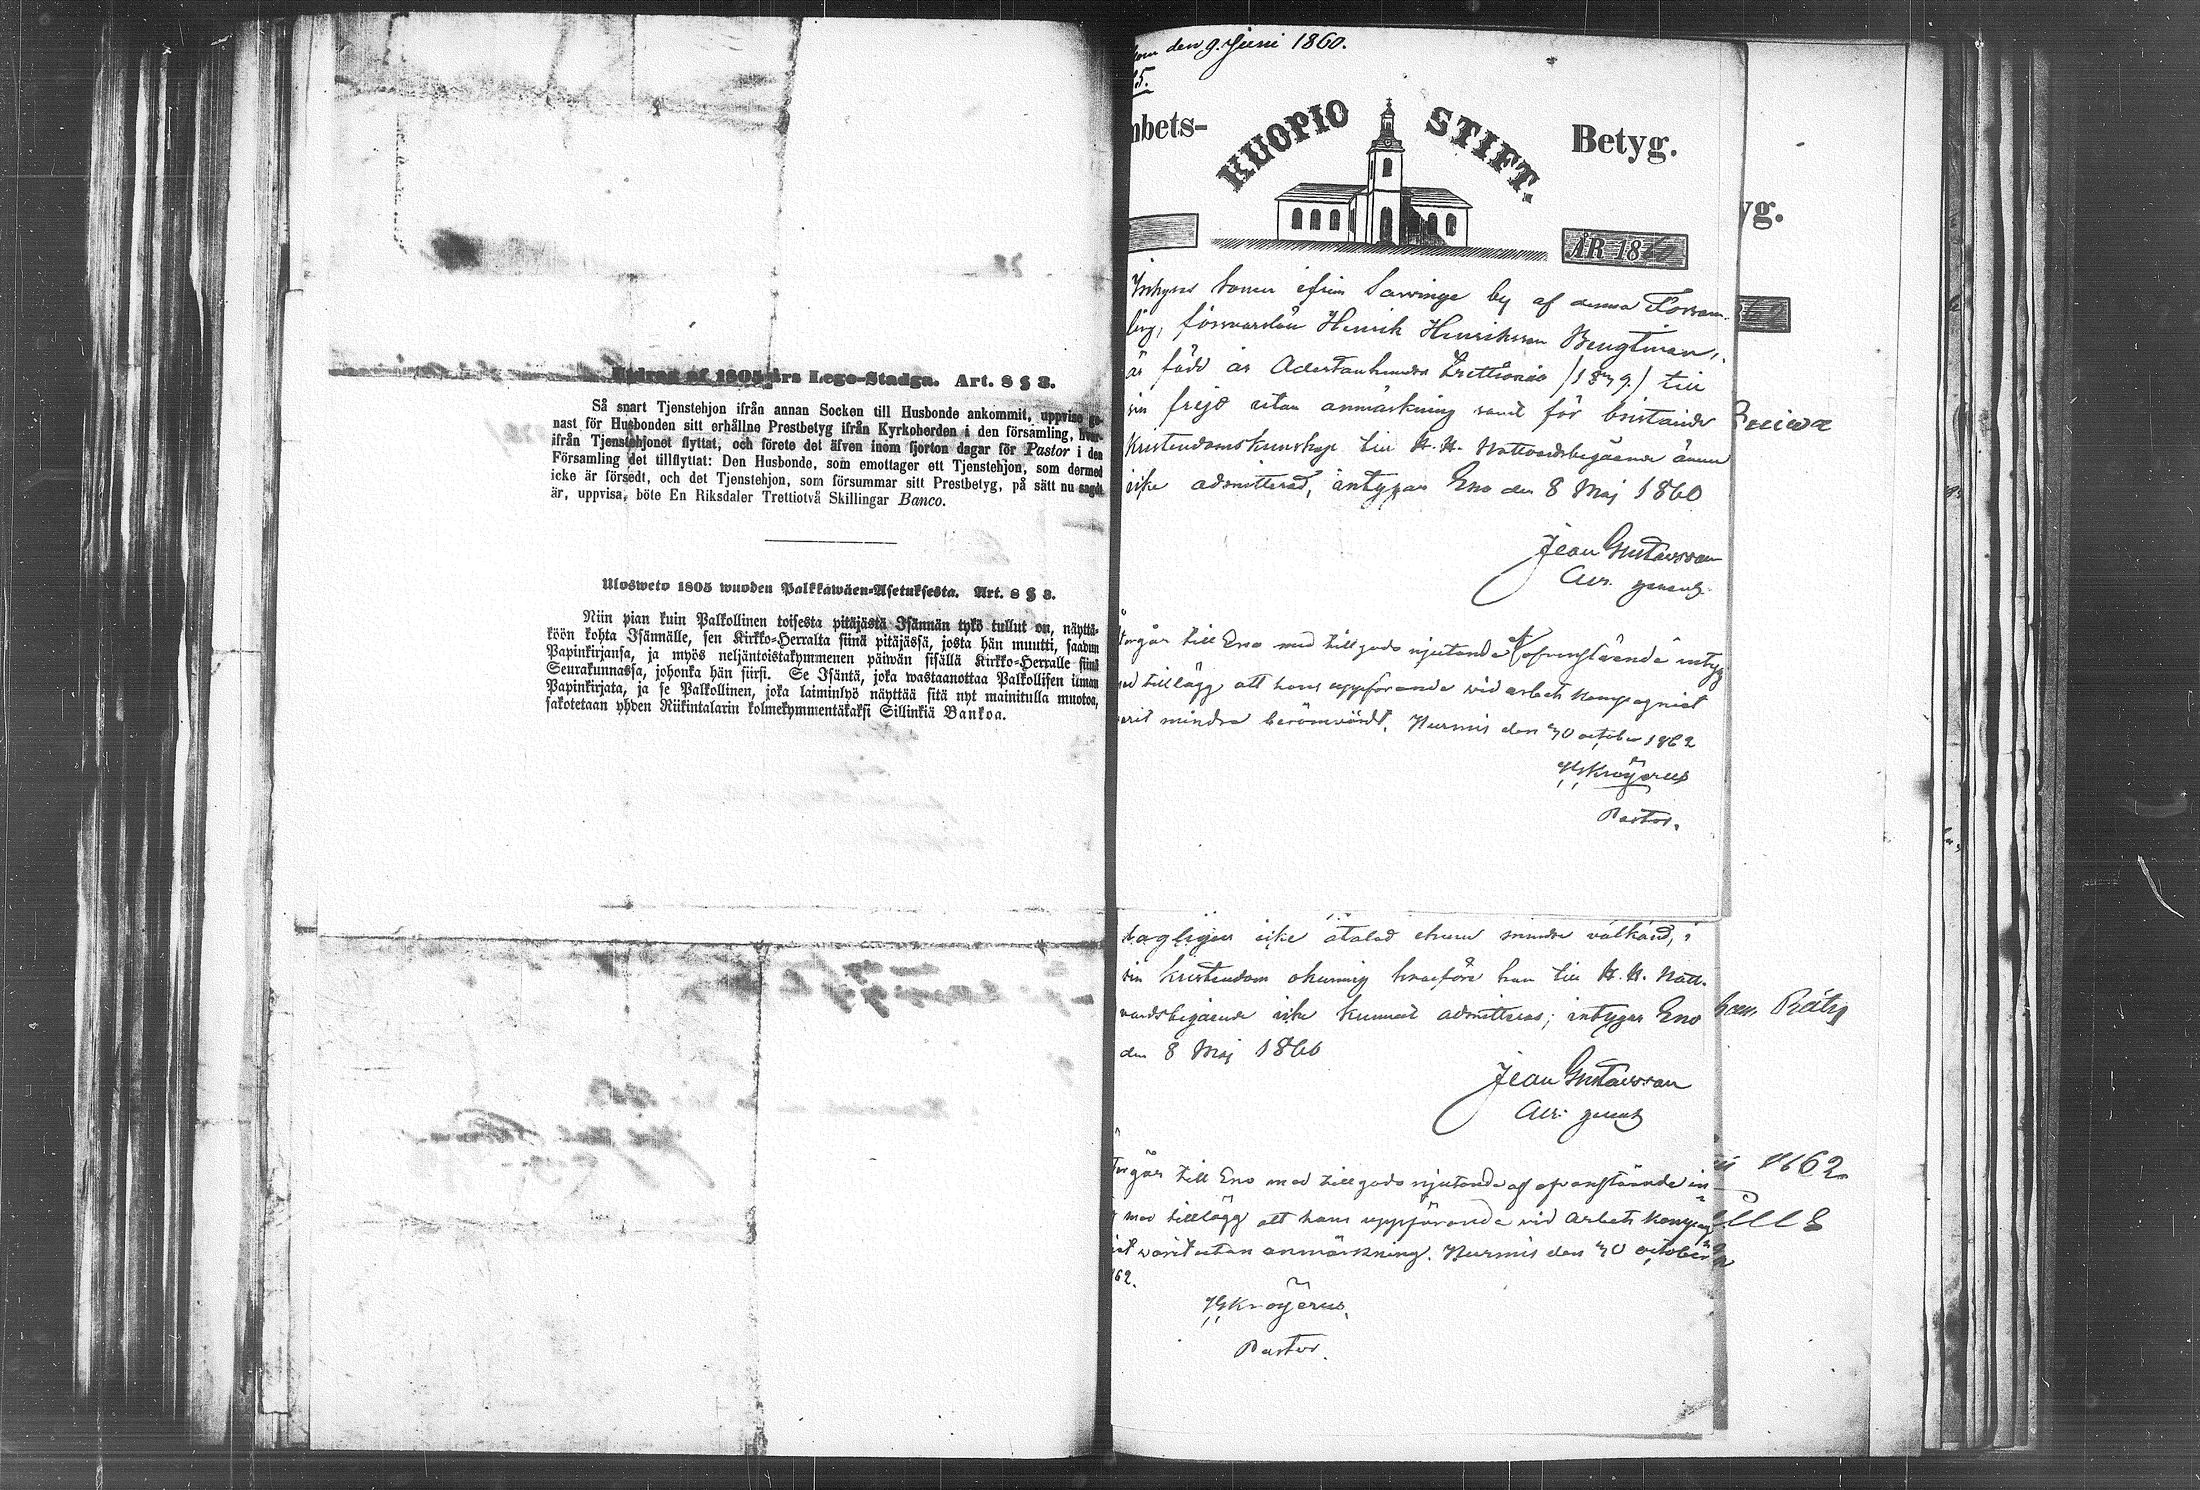 Utdrag af 1805 års Lego-Stadga. Art. 8 § 3.
Så snart Tjenstehjon ifrån annan Socken till Husbonde ankommit, uppvise ge-
nast för Husbonden sitt erhållne Prestbetyg ifrån Kyrkoherden i den församling, hvar-
ifrån Tjenstehjonet flyttat, och förete det äfven inom fjorton dagar för Pastor i den
Församling det tillflyttat: Den Husbonde, som emottager ett Tjenstehjon, som dermed
icke är försedt, och det Tjenstehjon, som försummar sitt Prestbetyg, på sätt nu sagdt
är, uppvisa, böte En Riksdaler Trettiotvå Skillingar Banco.
Ulosweto 1805 wuoden Palkkawäen-Asetuksesta. Art. 8 § 3.
Niin pian kuin Palkollinen toisesta pitäjästä Isännän tykö tullut on, näyttä-
köön kohta Isännälle, sen Kirkko-Herralta siinä pitäjässä, josta hän muutti, saadun
Papinkirjansa, ja myös neljäntoistakymmenen päiwän sisällä Kirkko-Herralle siinä
Seurakunnassa, johonka hän siirsi. Se Isäntä, joka wastaanottaa Palkollisen ilman
Papinkirjata, ja se Palkollinen, joka laiminlyö näyttää sitä nyt mainitulla muotoa,
sakotetaan yhden Riikintalarin kolmekymmentäkaksi Sillinkiä Bankoa.
den 9. Juni 1860.
15.
mbets-
KUOPIO STIFT.
Betyg.
ÅR 18
Inhyses Sonen ifrån Sarvinge by af denna Försam-
ling, försvarslöse Henrik Henriksson Bengtman,
är född år Adertonhundra Trettionio /1839/ till
sin frejd utan anmärkning samt för bristande
Kristendomskunskap till H. H. Nattvardsbegående ännu
icke admitterad, intygar Eno den 8 Maj 1860
Jean Gustavsson
Återgår till Eno med tillgodo njutande af ofvanstående intyg
med tillägg att hans uppförande vid arbets Kompagniet
varit mindre berömvärdt. Nurmis den 30 october 1862
Krogerus
Pastor.
tagligen icke åtalad ehuru mindre välkänd, i
sin kristendom okunnig hvarföre han till H. H. Natt-
vardsbegående icke kunnat admitteras; intygar Eno
den 8 Maj 1860
Jean Gustavsson
Återgår till Eno med tillgodo njutande af ofvanstående in-
med tillägg att hans uppförande vid arbets Kompag-
varit utan anmärkning. Nurmis den 30 october
62.
Krogerus.
Pastor.
yg.
1862